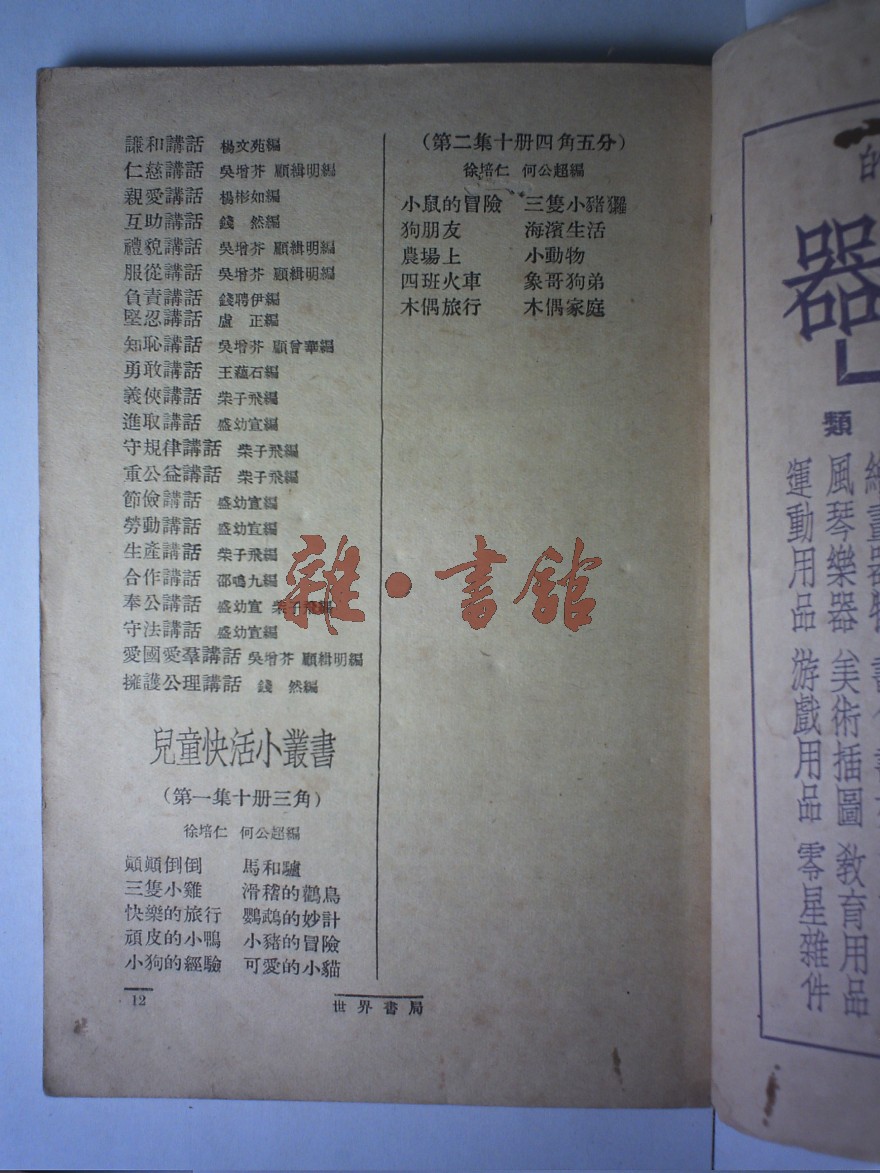 謙和講話 楊文苑編
仁慈講話 吳增芥 顧緝明編
親愛講話 楊彬如編
互助講話 錢 然編
禮貌講話 吳增芥 顧緝明編
服從講話 吳增芥 顧緝明編
負責講話 錢聘伊編
堅忍講話 盧 正編
知恥講話 吳增芥 顧曾華編
勇敢講話 王蘊石編
義俠講話 柴子飛編
進取講話 盛幼宣編
守規律講話 柴子飛編
重公益講話 柴子飛編
節儉講話 盛幼宣編
勞動講話 盛幼宣編
生產講話 柴子飛編
合作講話 邵鳴九編
奉公講話 盛幼宣 柴子飛編
守法講話 盛幼宣編
愛國愛羣講話 吳增芥 顧緝明編
擁護公理講話 錢 然編
兒童快活小叢書
（第一集十册三角）
徐培仁 何公超編
顚顚倒倒 馬和驢
三隻小雞 滑稽的鸛鳥
快樂的旅行 鸚鵡的妙計
頑皮的小鴨 小豬的冒險
小狗的經驗 可愛的小貓
（第二集十册四角五分）
徐培仁 何公超編
小鼠的冒險 三隻小豬玀
狗朋友 海濱生活
農場上 小動物
四班火車 象哥狗弟
木偶旅行 木偶家庭
12
世界書局
雜·書館
的
器
類
風琴樂器 美術插圖 教育用品
運動用品 游戲用品 零星雜件